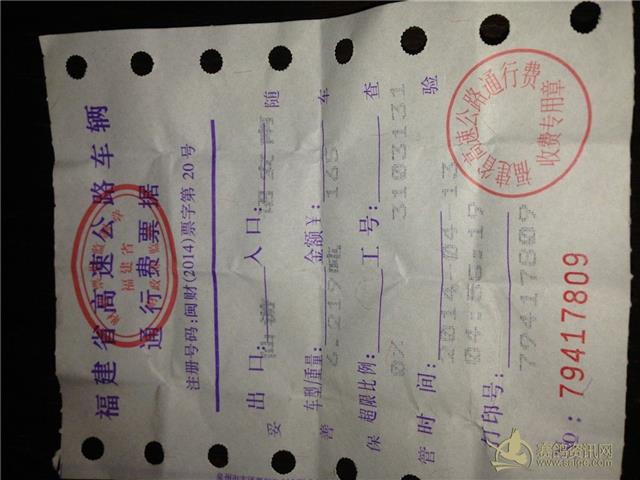 福建省高速公路车辆
通行费票据
福建省
注册号码:闽财(2014)票字第 20 号
出口: 入口:
车型/重量: 金额¥: 165
超限比例: 0% 工号: 3103131
时间: 2014-04-13
04:55:19
打印号: 79417809
79417809
妥善保管 随车查验
福建省高速公路通行费
收费专用章
赛鸽资讯网
www.saige.com